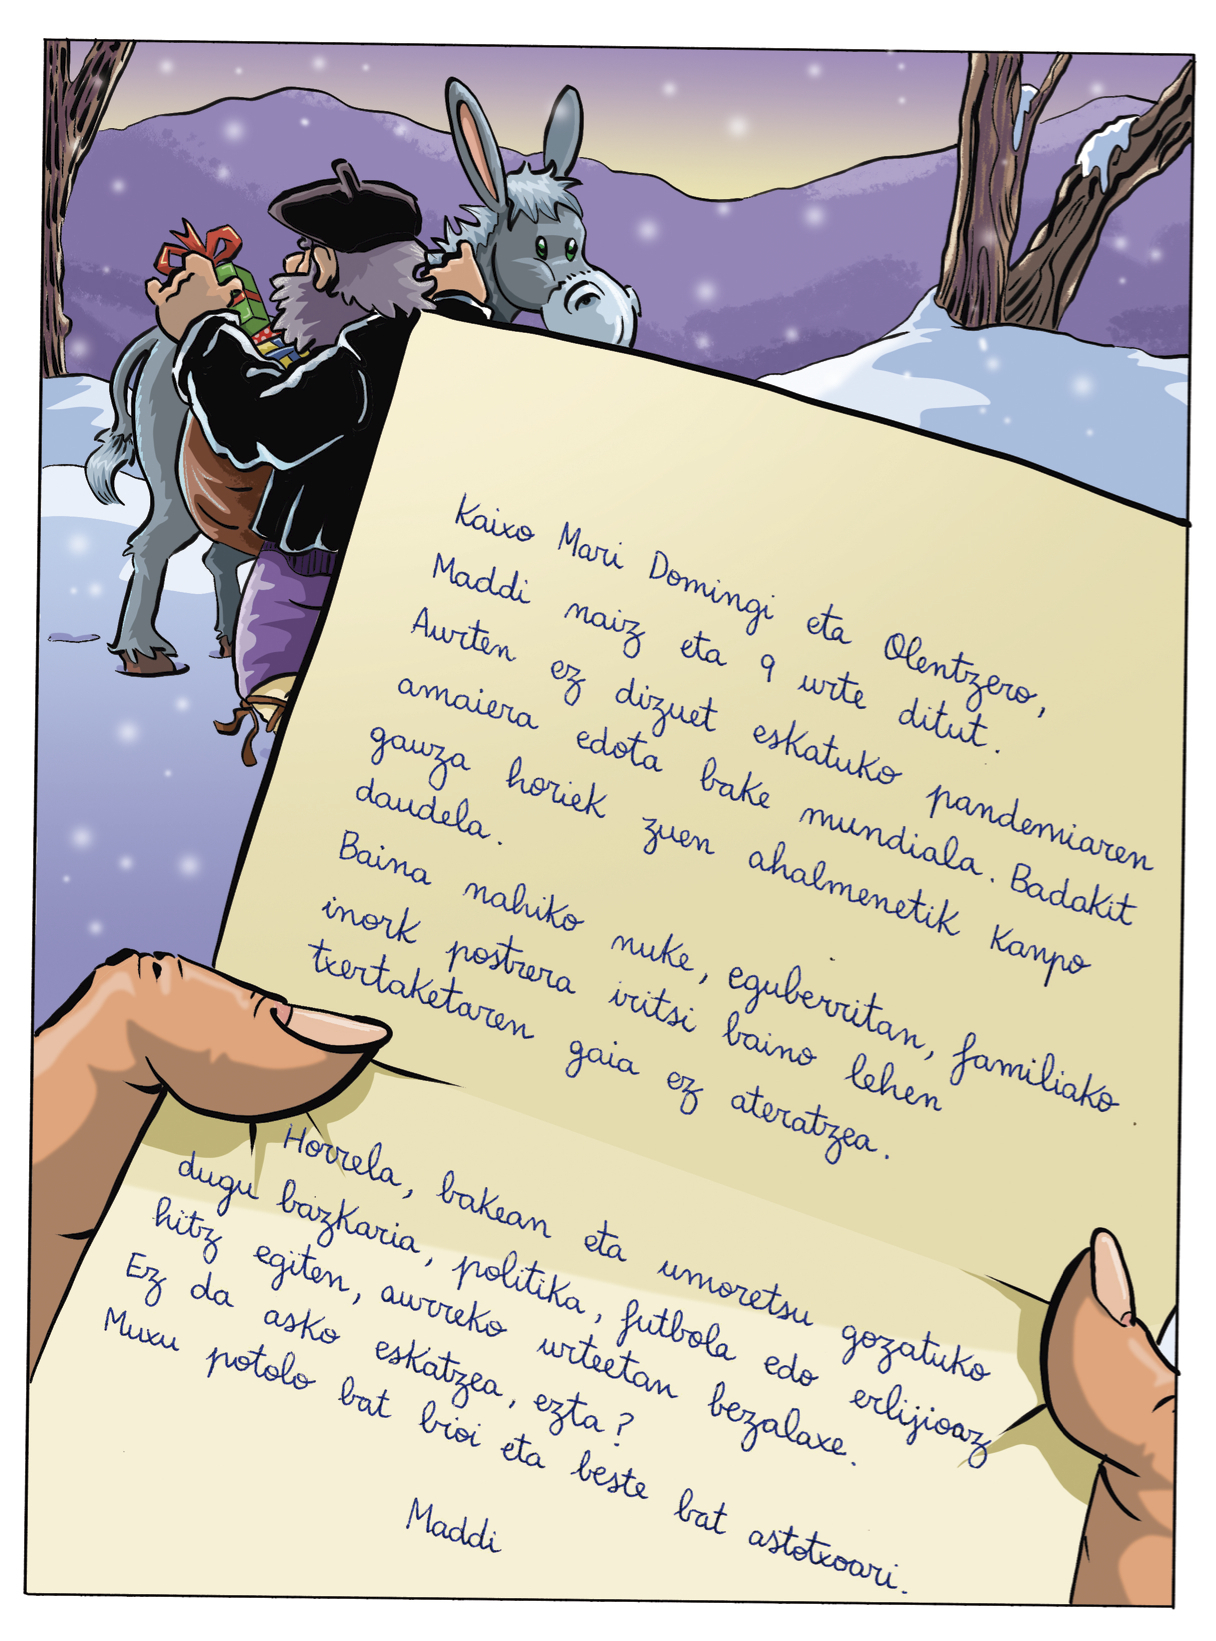 Kaixo Mari Domingi eta Olentzero,
Maddi naiz eta 9 urte ditut.
Aurten ez dizuet eskatuko pandemiaren
amaiera edota bake mundiala. Badakit
gauza horiek zuen ahalmenetik kanpo
daudela.
Baina nahiko nuke, eguberritan, familiako
inork postrera iritsi baino lehen
txertaketaren gaia ez ateratzea.
Horrela, bakean eta umoretsu gozatuko
dugu bazkaria, politika, futbola edo erlijioaz
hitz egiten, aurreko urteetan bezalaxe.
Ez da asko eskatzea, ezta?
Muxu potolo bat bioi eta beste bat astotxoari.
Maddi